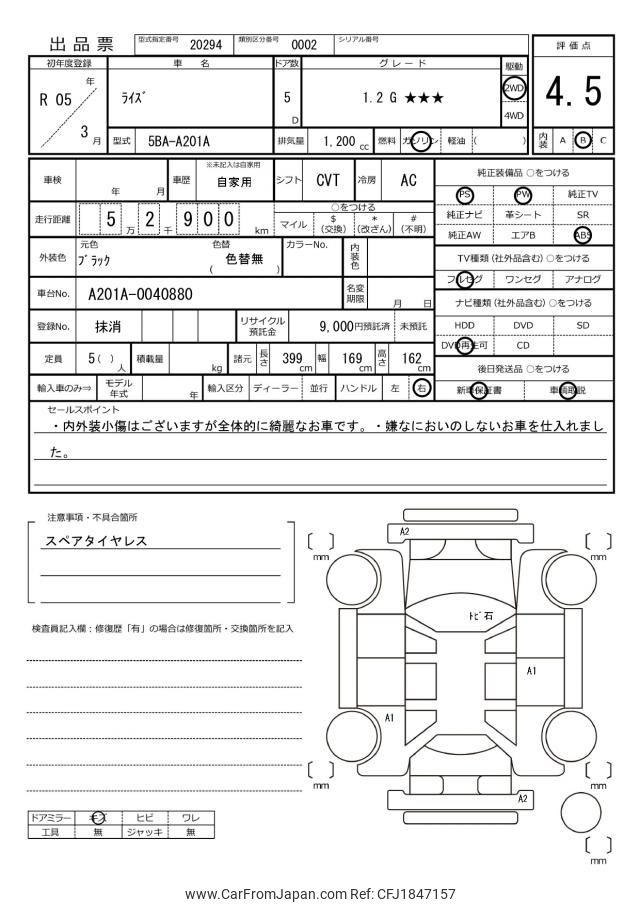 出品票
型式指定番号 20294 類別区分番号 0002 シリアル番号
評価点
4.5
内装 A B C
初年度登録 車 名 ドア数 グレード 駆動
R 05 年 3 月
ライズ 5 D 1.2 G ★★★ 2WD 4WD
型式 5BA-A201A 排気量 1,200 cc 燃料 ガソリン 軽油 ( )
車検 年 月 車歴 ※未記入は自家用 自家用 シフト CVT 冷房 AC
走行距離 5 2 9 0 0 万 千 km
○をつける
マイル $ (交換) * (改ざん) # (不明)
外装色 元色 ブラック 色替 ( 色替無 ) カラーNo. 内装色
車台No. A201A-0040880 名変期限 月 日
登録No. 抹消 リサイクル預託金 9,000円預託済 未預託
定員 5( ) 人 積載量 kg 諸元 長さ 399 cm 幅 169 cm 高さ 162 cm
輸入車のみ⇒ モデル年式 年 輸入区分 ディーラー 並行 ハンドル 左 右
純正装備品 ○をつける
PS PW 純正TV
純正ナビ 革シート SR
純正AW エアB ABS
TV種類(社外品含む) ○をつける
フルセグ ワンセグ アナログ
ナビ種類(社外品含む) ○をつける
HDD DVD SD
DVD再生可 CD
後日発送品 ○をつける
新車保証書 車輌取説
セールスポイント
・内外装小傷はございますが全体的に綺麗なお車です。・嫌なにおいのしないお車を仕入れまし
た。
注意事項・不具合箇所
スペアタイヤレス
検査員記入欄：修復歴「有」の場合は修復箇所・交換箇所を記入
ドアミラー キズ ヒビ ワレ
工具 無 ジャッキ 無
A2
mm
mm
トビ石
A1
A1
mm
mm
A2
mm
www.CarFromJapan.com Ref: CFJ1847157